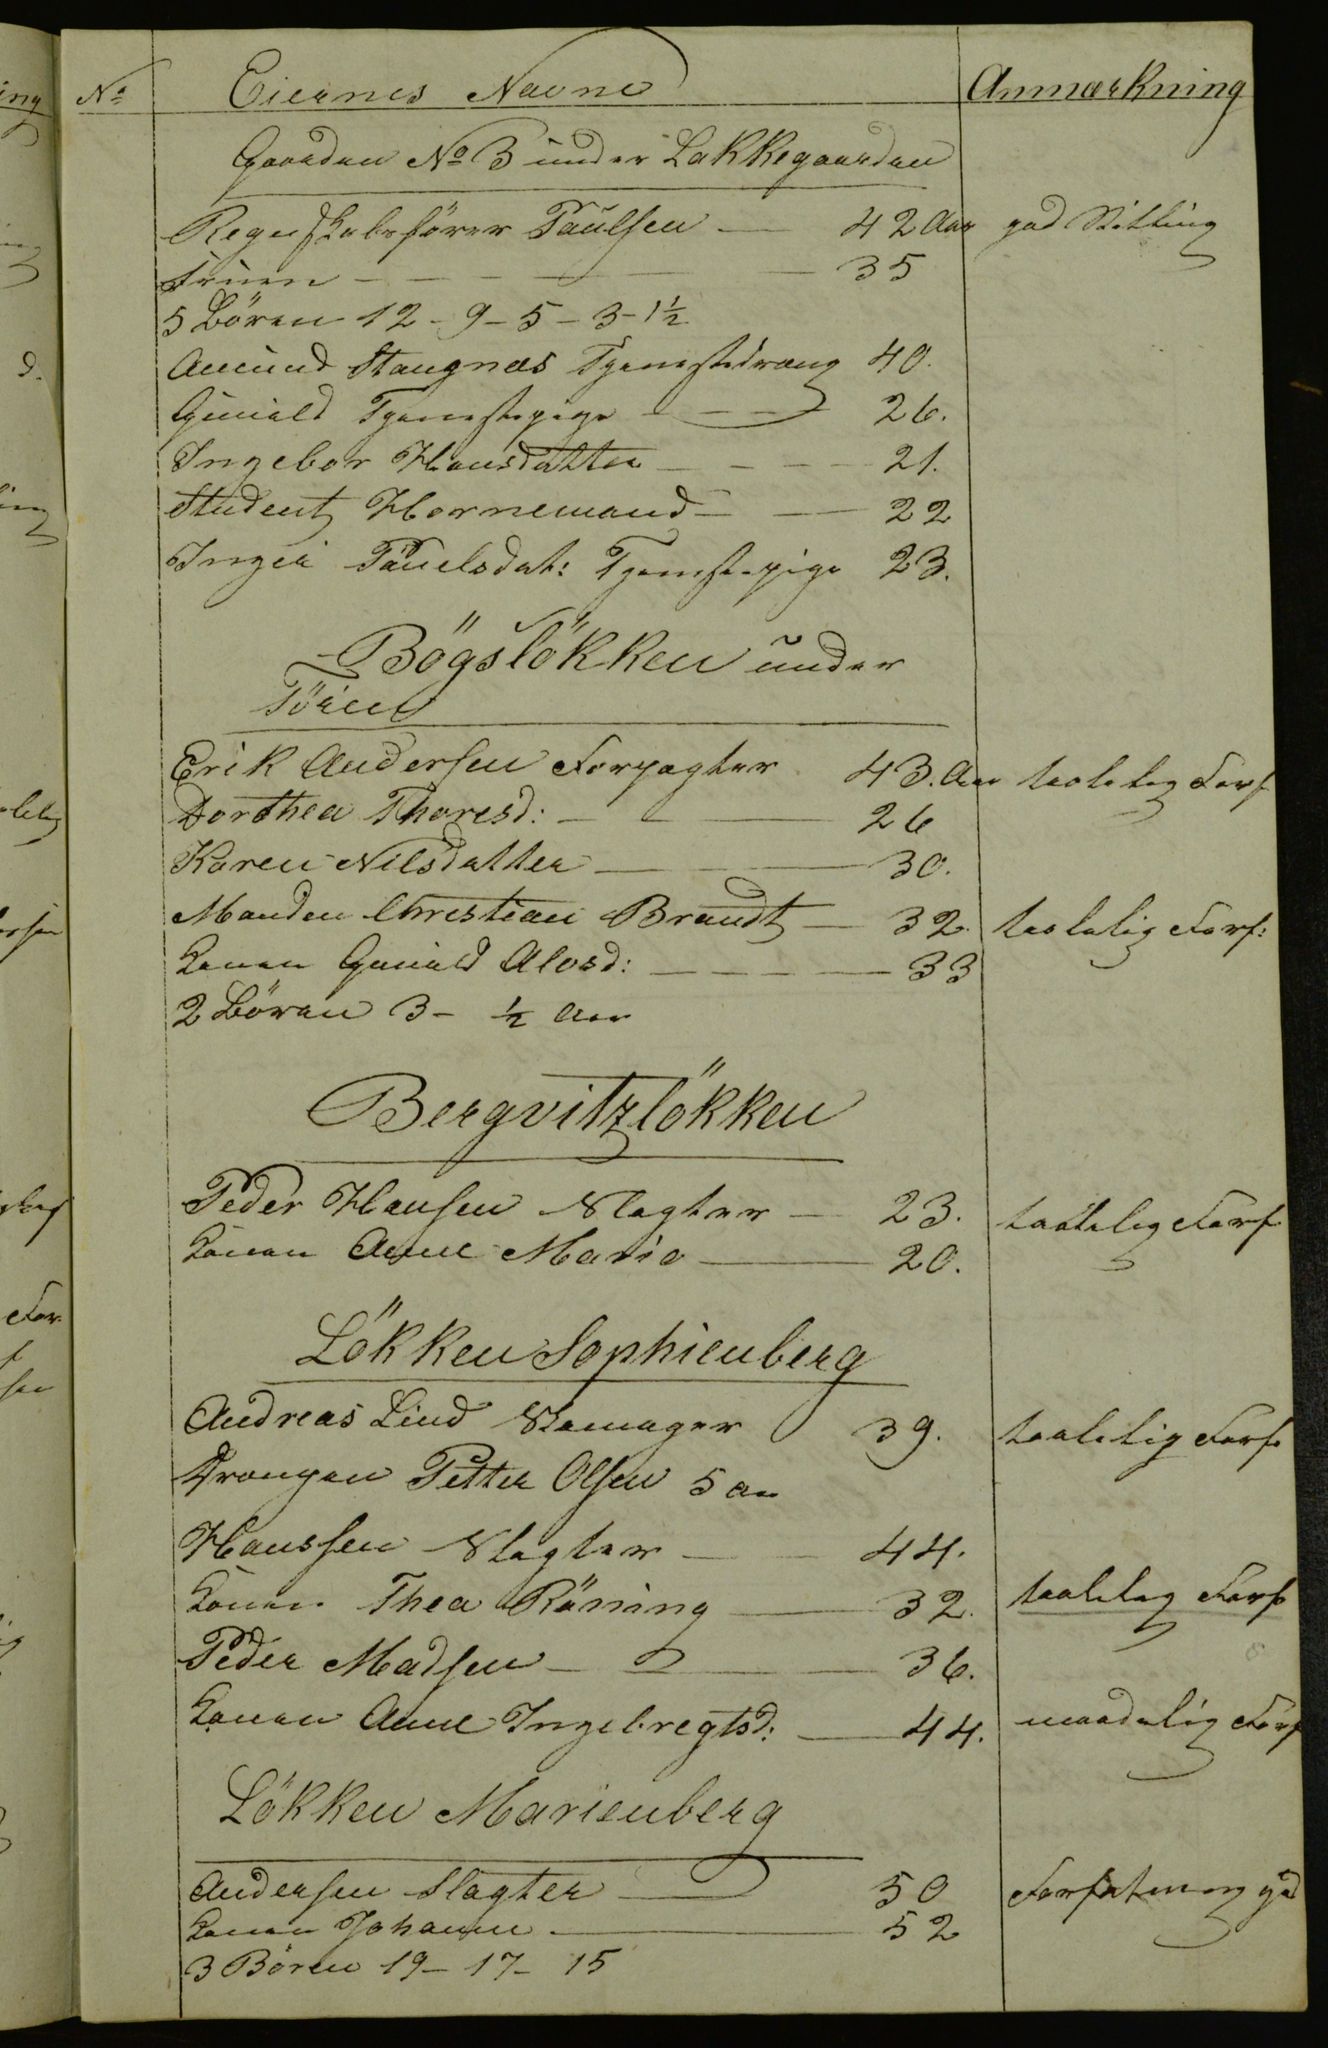 No Eiernes Navne Anmærkning
Gaarden No 3 under Lakkegaarden
Regnskabsfører Paulsen — 42 Aar god Stilling
Fruen — 35
5 Börn 12 - 9 - 5 - 3 - 1½
Amund Stangnæs Tjenestedræng 40.
Gunild Tjenestepige — 26.
Ingebor Hansdatter — 21.
Student Hornemand — 22
Inger Pauelsdat: Tjenstepige 23.
Bögslökken under
Töien
Erik Andersen Forpagter 43. Aar taalelig Forf
Dorthea Thoresd: — 26
Karen Nilsdatter — 30.
Manden Christian Brandt — 32. taalelig Forf:
Konen Gunild Alvsd: — 33
2 Börn 3 - ½ Aar
Bergvitzlökken
Peder Hansen Slagter — 23. taalelig Forf
Konen Anne Marie — 20.
Lökken Sophienberg
Andreas Lind Skomager 39. taalelig Forf
Drengen Petter Olsen 5 Aar
Hanssen Slagter — 44.
Konen Thea Röning — 32. taalelig Forf
Peder Madsen — 36.
Konen Anne Ingebregtsd: — 44. maadelig Forf
Lökken Marienberg
Andersen Slagter — 50 Forfatning god
Konen Johanne — 52
3 Börn 19 - 17 - 15